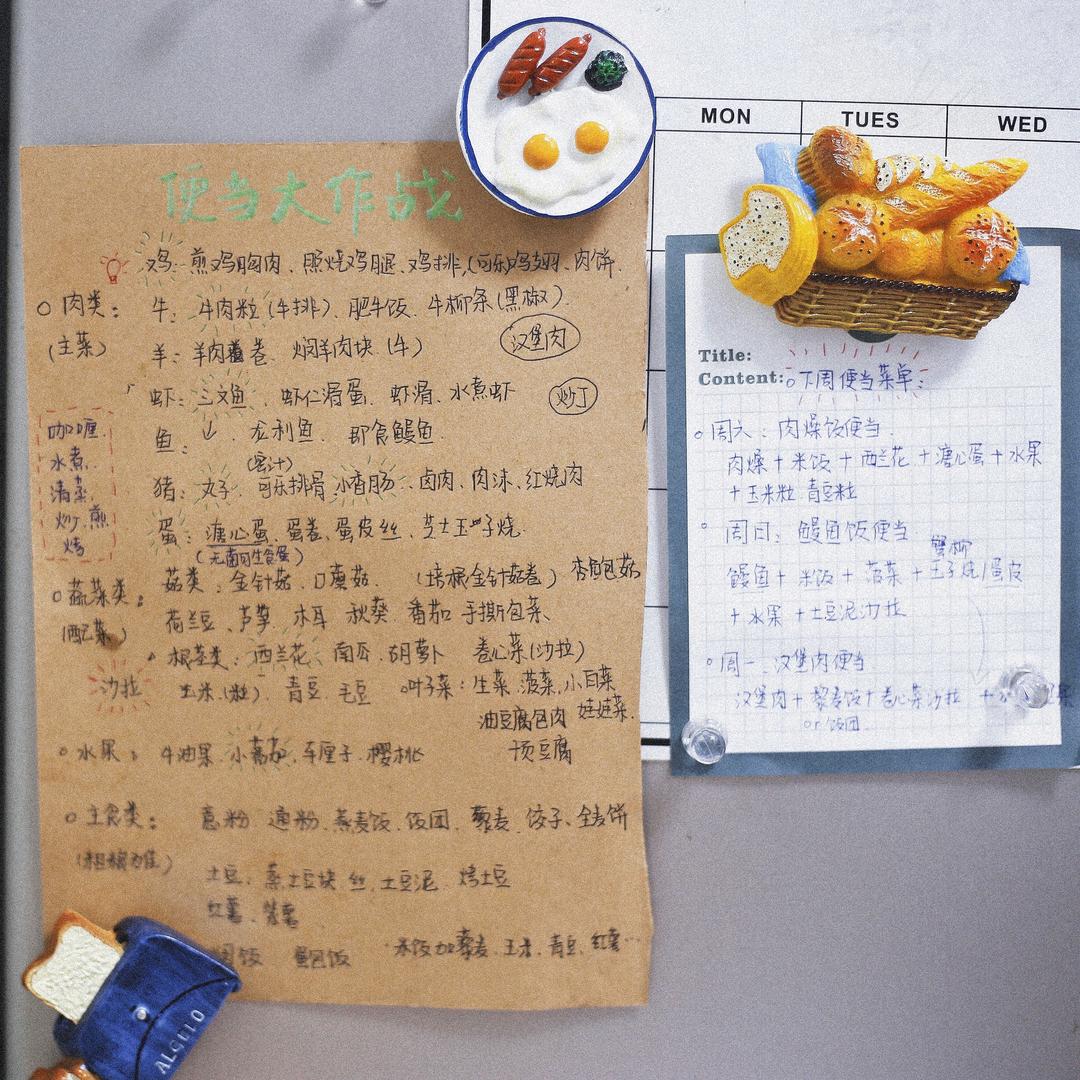 便当大作战
鸡: 煎鸡胸肉、照烧鸡腿、鸡排、(可乐)鸡翅、肉饼.
肉类: 牛: 牛肉粒(牛排)、肥牛饭、牛柳条(黑椒).
(主菜) 羊: 羊肉卷、焖羊肉块(牛) 汉堡肉
虾: 三文鱼、虾仁滑蛋、虾滑、水煮虾 炒丁
鱼: ↓、龙利鱼、即食鳗鱼.
(蜜汁)
猪: 丸子、可乐排骨、小香肠、卤肉、肉沫、红烧肉
蛋: 溏心蛋、蛋卷、蛋皮丝、芝士玉子烧.
(无菌可生食蛋)
咖喱
水煮.
清蒸.
炒.煎
烤
蔬菜类: 菇类: 金针菇 口蘑菇. (培根金针菇卷) 杏鲍菇
(配菜) 荷兰豆、芦笋、木耳 秋葵、番茄 手撕包菜
根茎类: 西兰花、南瓜、胡萝卜 卷心菜(沙拉)
沙拉 玉米(粒)、青豆 毛豆 叶子菜: 生菜.菠菜.小白菜
油豆腐包肉 娃娃菜.
千页豆腐
水果: 牛油果.小番茄.车厘子.樱桃
主食类: 意粉.通粉.燕麦饭.饭团.藜麦.饺子、全麦饼
土豆: 蒸土豆块 丝.土豆泥.烤土豆
红薯、紫薯
蛋包饭 米饭加藜麦、玉米、青豆、红薯…
ALCULO
MON TUES WED
Title:
Content: 下周便当菜单:
周六: 肉燥饭便当.
肉燥+米饭+西兰花+溏心蛋+水果
+玉米粒 青豆粒
周日: 鳗鱼饭便当
蟹柳
鳗鱼+米饭+菠菜+玉子烧/蛋皮
+水果+土豆泥沙拉
周一: 汉堡肉便当
汉堡肉+藜麦饭+卷心菜沙拉 +
or饭团